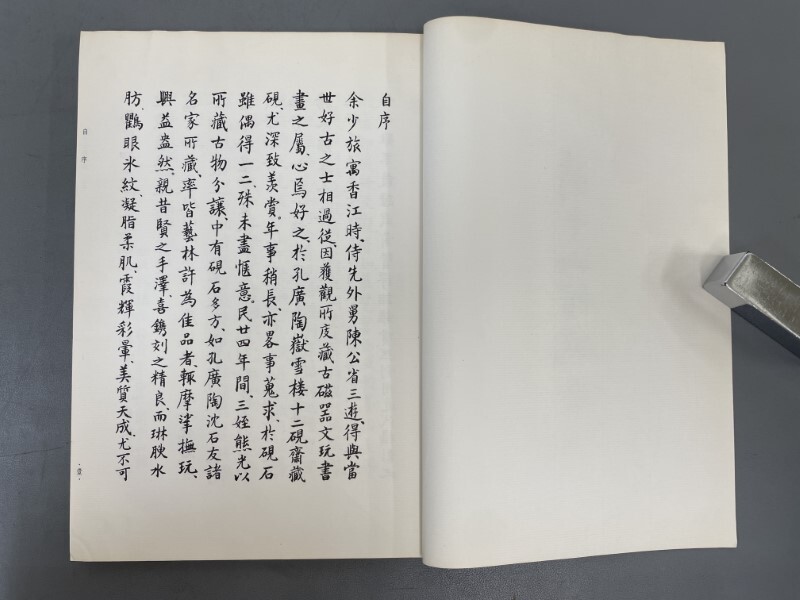 自序
余少旅寓香江時、侍先外舅陳公省三遊、得與當
世好古之士相過從、因獲觀所庋藏古磁器文玩書
畫之屬、心焉好之、於孔廣陶嶽雪樓十二硯齋藏
硯、尤深致羨賞、年事稍長、亦畧事蒐求、於硯石
雖偶得一二、殊未盡愜意、民廿四年間、三姪熊光以
所藏古物分讓、中有硯石多方、如孔廣陶沈石友諸
名家所藏、率皆藝林許為佳品者、輒摩挲撫玩、
興益盎然、親昔賢之手澤、喜鐫刻之精良、而琳腴水
肪、鸜眼氷紋、凝脂柔肌、霞輝彩暈、美質天成、尤不可
自序